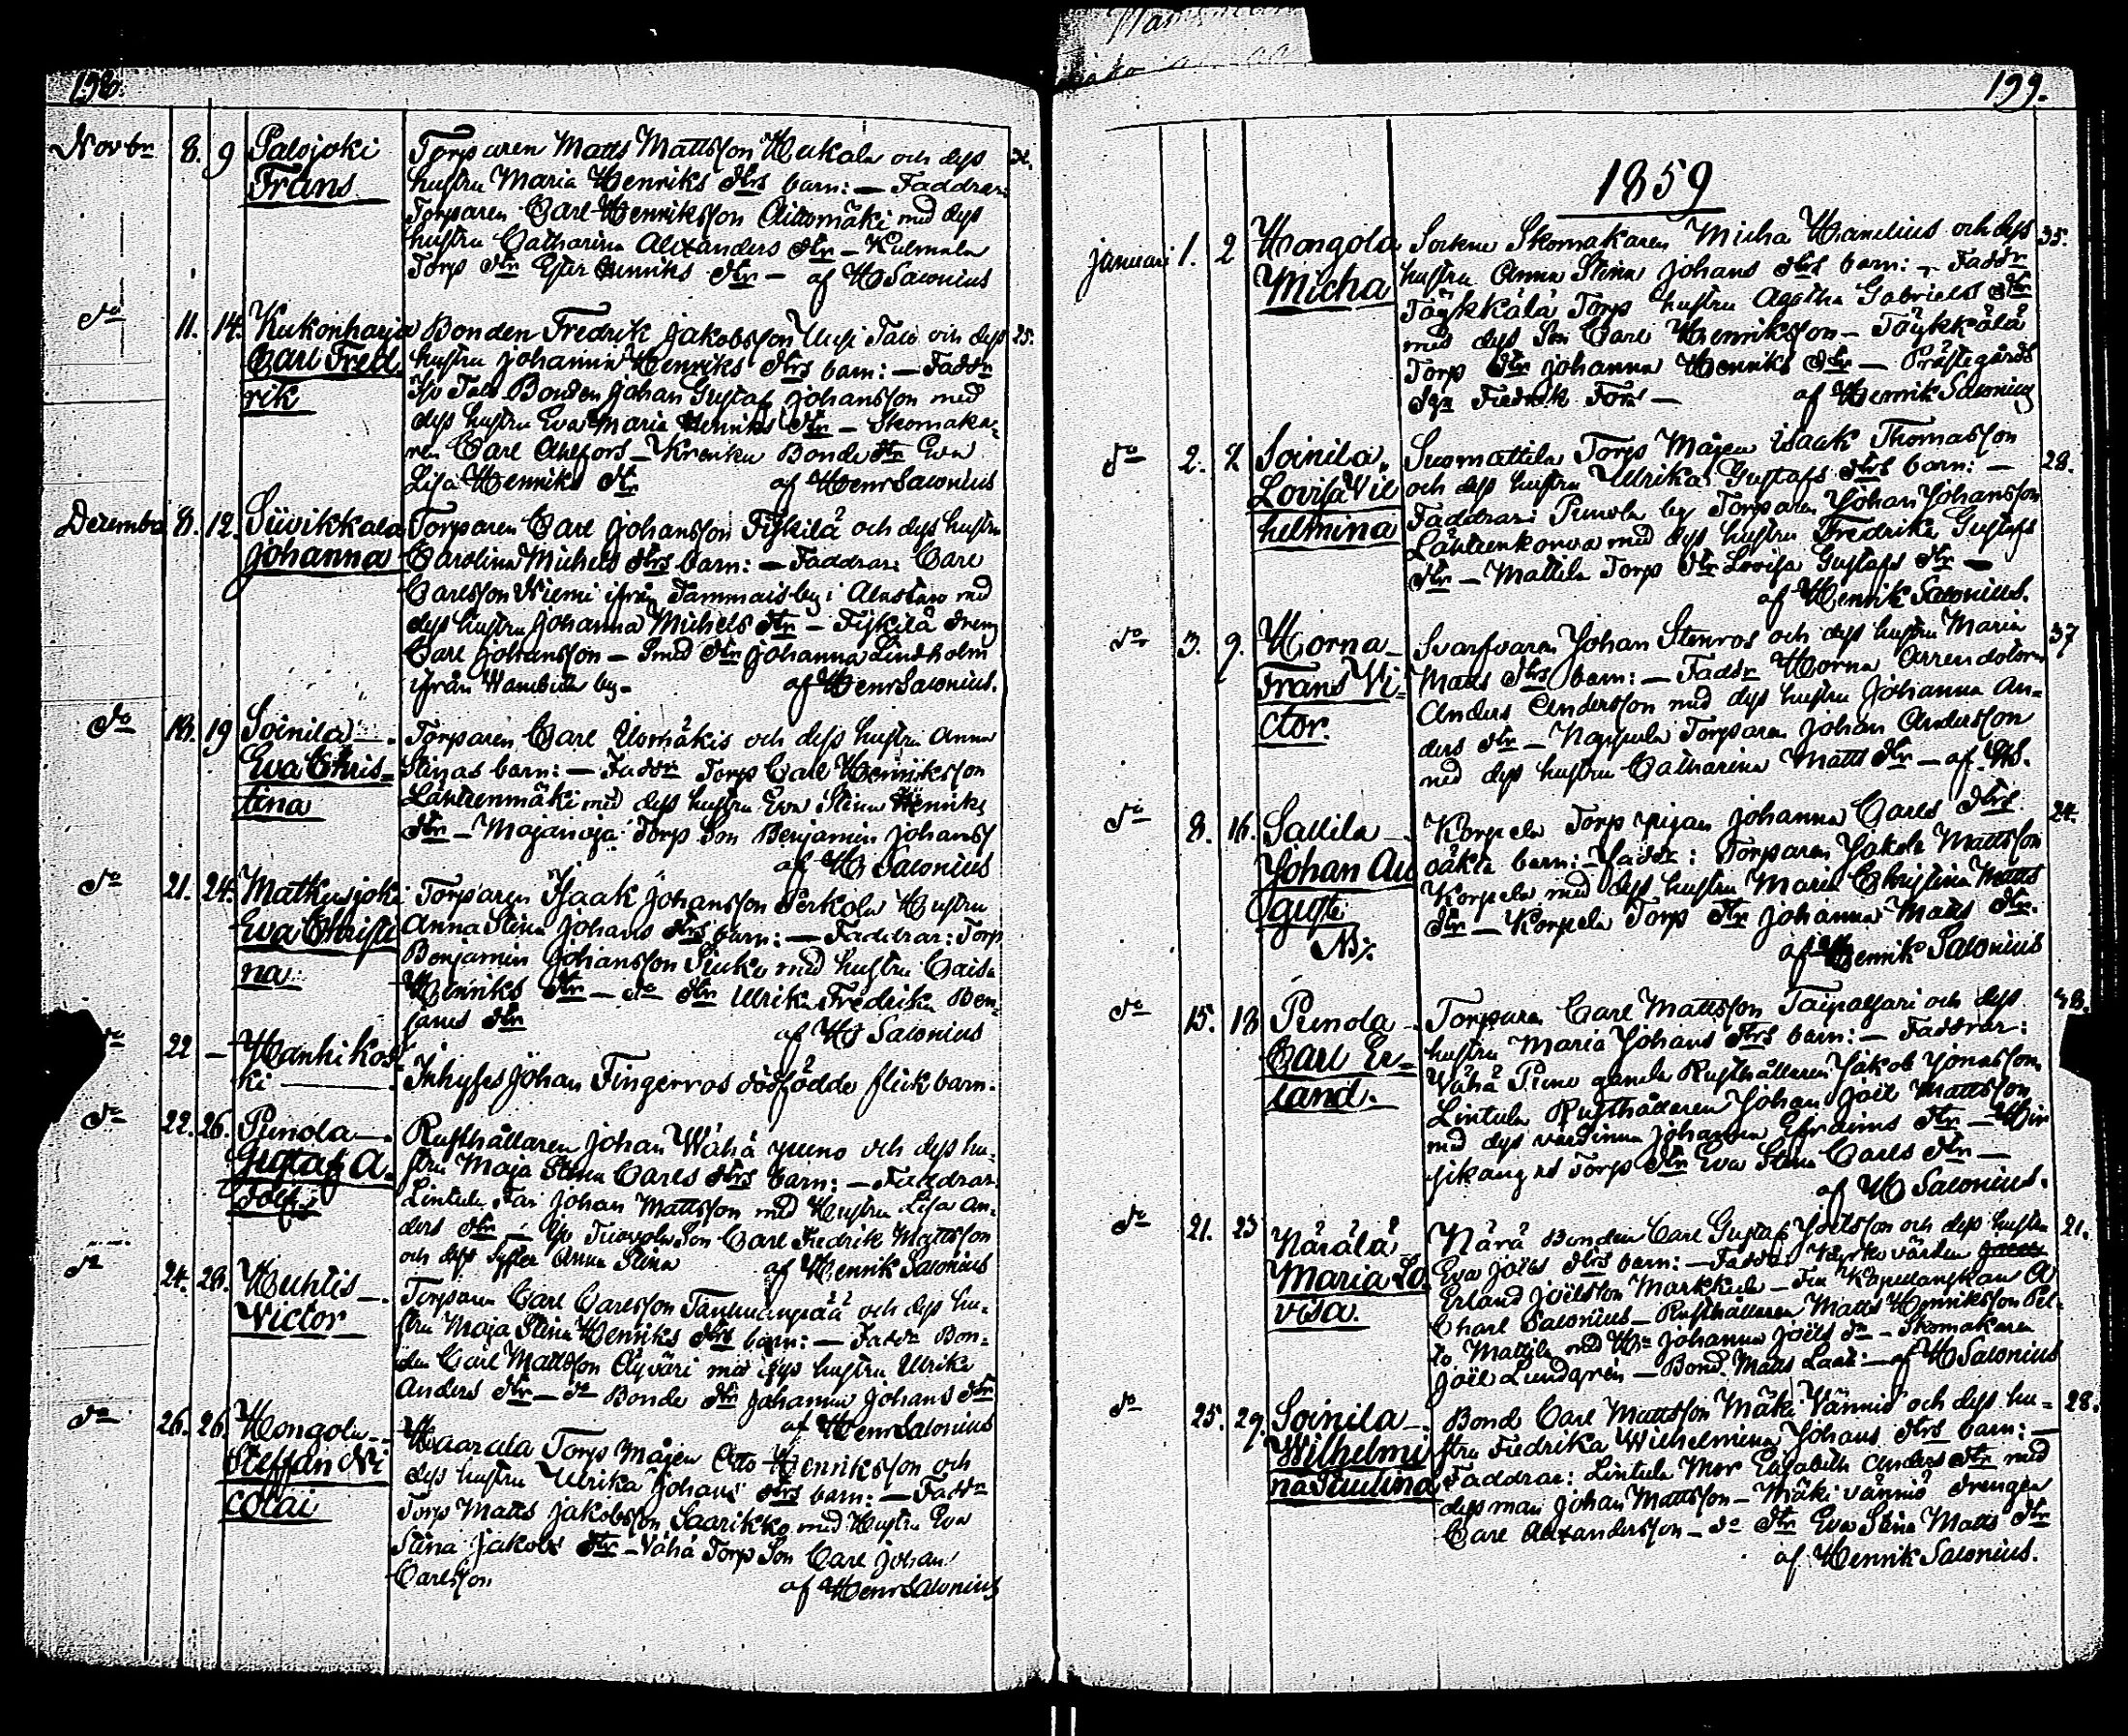 198.
Novbr 8. 9 Palojoki Torparen Matts Mattsson Hukala och dess
Frans hustru Maria Henriks dtrs barn: — Faddrar:
Torparen Carl Henriksson Aittomäki med dess
hustru Catharina Alexanders dtr — Kulmala
Torp dtr Ester Henriks dtr — af H Salonius
do 11. 14. Kukonharja Bonden Fredrik Jakobsson Uusi Talo och dess 25.
Carl Fred hustru Johanna Henriks dtrs barn: — Faddr
rik Iso Talo Bonden Johan Gustaf Johansson med
dess hustru Eva Maria Henriks dtr — Skomaka=
ren Carl Ahlfors — Krenku Bonde dtr Eva
Lisa Henriks dtr af Henr Salonius
December 8. 12. Süvikkala Torparen Carl Johansson Fiskilä och dess hustru
Johanna Carolina Michels dtrs barn: — Faddrar: Carl
Carlsson Niemi ifrån Tammais by i Alastaro med
dess hustru Johanna Michels dtr — Fiskilä dreng
Carl Johansson — Smed dtr Johanna Lindholm
ifrån Wambula by — af Henr Salonius.
do 18. 19 Soinila — Torparen Carl Ylomäkis och dess hustru Anna
Eva Chris= Stinas barn: — Faddr Torp Carl Henriksson
tina Läntenmäki med dess hustru Eva Stina Henriks
dtr — Majanoja Torp Son Benjamin Johanss
af H Salonius
do 21. 24. Matkusjoki Torparen Isaak Johansson Perkola Hustru
Eva Christi Anna Stina Johans dtrs barn: — Faddrar: Torp
na. Benjamin Johansson Suko med hustru Caisa
Henriks dtr — do dtr Ulrika Fredrika Ben=
jams dtr af H Salonius
do 22 — Hanhikos
ki — Inhyses Johan Fingerroos dödfödde flickbarn.
do 22. 26. Punola — Rusthållaren Johan Wähä puno och dess hu=
Gustaf A. stru Maja Stina Carls dtrs barn: — Faddrar
dolf. Lintula Far Johan Mattsson med Hustru Lisa An=
ders dtr — Son Carl Fredrik Mattsson
och dess Syster Anna Stina af Henrik Salonius
do 24. 28. Huhtis — Torparen Carl Carlsson Tanumanpää och dess hu=
Victor stru Maja Stina Henriks dtrs barn: — Faddr Bon=
den Carl Mattsson Äyväri med dess hustru Ulrika
Anders dtr — do Bonde dtr Johanna Johans dtr
af Henr Salonius
do 26. 26. Hongola — Haarala Torp Mågen Otto Henriksson och
Steffan Ni dess hustru Ulrika Johans dtrs barn: — Faddr
colai Torp Matts Jakobsson Saarikko med Hustru Eva
Stina Jakobs dtr — Vähä Torp Son Carl Johan
Carlsson af Henr Salonius
199.
1859
Januari 1. 2 Hongola Sockne Skomakaren Micha Hanelius och dess 35.
Micha hustru Anna Stina Johans dtrs barn: — Faddr
Töykkälä Torp hustru Agatha Gabriels dtr
med dess Son Carl Henriksson — Töykkälä
Torp dtr Johanna Henriks dtr — Prästegårds
Fredrik Fors — af Henrik Salonius
do 2. 2 Soinila. Suomattila Torp Mågen Isaak Thomasson 28.
Lovisa Vil och dess hustru Ulrika Gustafs dtrs barn: —
helmina Faddrar: Punola by Torparen Johan Johansson
Läntenkorva med dess hustru Fredrika Gustafs
dtr — Mattila Torp dtr Lovisa Gustafs dtr —
af Henrik Salonius.
do 3. 9. Horna — Svarfvaren Johan Stenros och dess hustru Maria 37
Frans Vi= Matts dtrs barn: — Faddr Horna Arrendatorn
ctor. Anders Andersson med dess hustru Johanna An=
ders dtr — Nappula Torparen Johan Andersson
med dess hustru Catharina Matts dtr — af HS.
do 8. 16. Sallila — Korpela Torp pigan Johanna Carls dtrs 24.
Johan Au oäkta barn: — Faddr: Torparen Jakob Mattsson
gusti Korpela med dess hustru Maria Christina Matts
N:. dtr — Korpela Torp dtr Johanna Matts dtr.
af Henrik Salonius
do 15. 18 Punola — Torparen Carl Mattsson Taipalsari och dess 38.
Carl Er= hustru Maria Johans dtrs barn: — Faddrar:
land. Wähä Puno gamla Rusthållaren Jakob Jonasson,
Lintula Rusthållaren Johan Joel Mattsson
med dess värdinna Johanna Efraims dtr — Hir
sikangas Torp dtr Eva Stina Carls dtr —
af H Salonius.
do 21. 23 Närälä Närä Bonden Carl Gustaf Joelsson och dess hustru 21.
Maria Lo Eva Joels dtrs barn: — Faddr: Kyrkovärden
visa. Erland Joelsson Markkula — Fru Kapellanskan A
Charl Salonius — Rusthållaren Matts Henriksson Pel=
to Mattila med Hn Johanna Joels dr — Skomakaren
Joel Lundgrén — Bond. Matts Laati — af H Salonius
do 25. 29. Soinila — Bond Carl Mattsson Mäki Vänniö och dess hu= 28.
Wilhelmi stru Fredrika Wilhelmina Johans dtrs barn: —
na Paulina Faddrar: Lintula Mor Elisabeth Anders dtr med
dess man Johan Mattsson — Mäki vänniö drengen
Carl Alexandersson — do dtr Eva Stina Matts dtr
af Henrik Salonius.